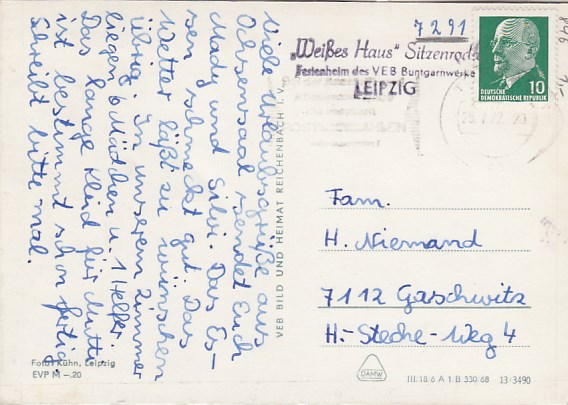 Viele Urlaubsgrüße aus
Ochsensaal sendet Euch
Mady und Silvi. Das Es-
sen schmeckt gut. Das
Wetter läßt zu wünschen
übrig. In unserem Zimmer
liegen 6 Mädchen u. 1 Helfer.
Das lange Kleid für Mutti
ist bestimmt schon fertig.
Schreibt bitte mal.
Foto: Kühn, Leipzig
EVP M –.20
VEB BILD UND HEIMAT REICHENBACH I. V.
7291
„Weißes Haus" Sitzenroda
Ferienheim des VEB Buntgarnwerke
LEIPZIG
DEUTSCHE
DEMOKRATISCHE REPUBLIK
10
Fam.
H. Niemand
7112 Gaschwitz
H.-Steche-Weg 4
DAMW
III. 18. 6 A 1. B 330/68 13/3490